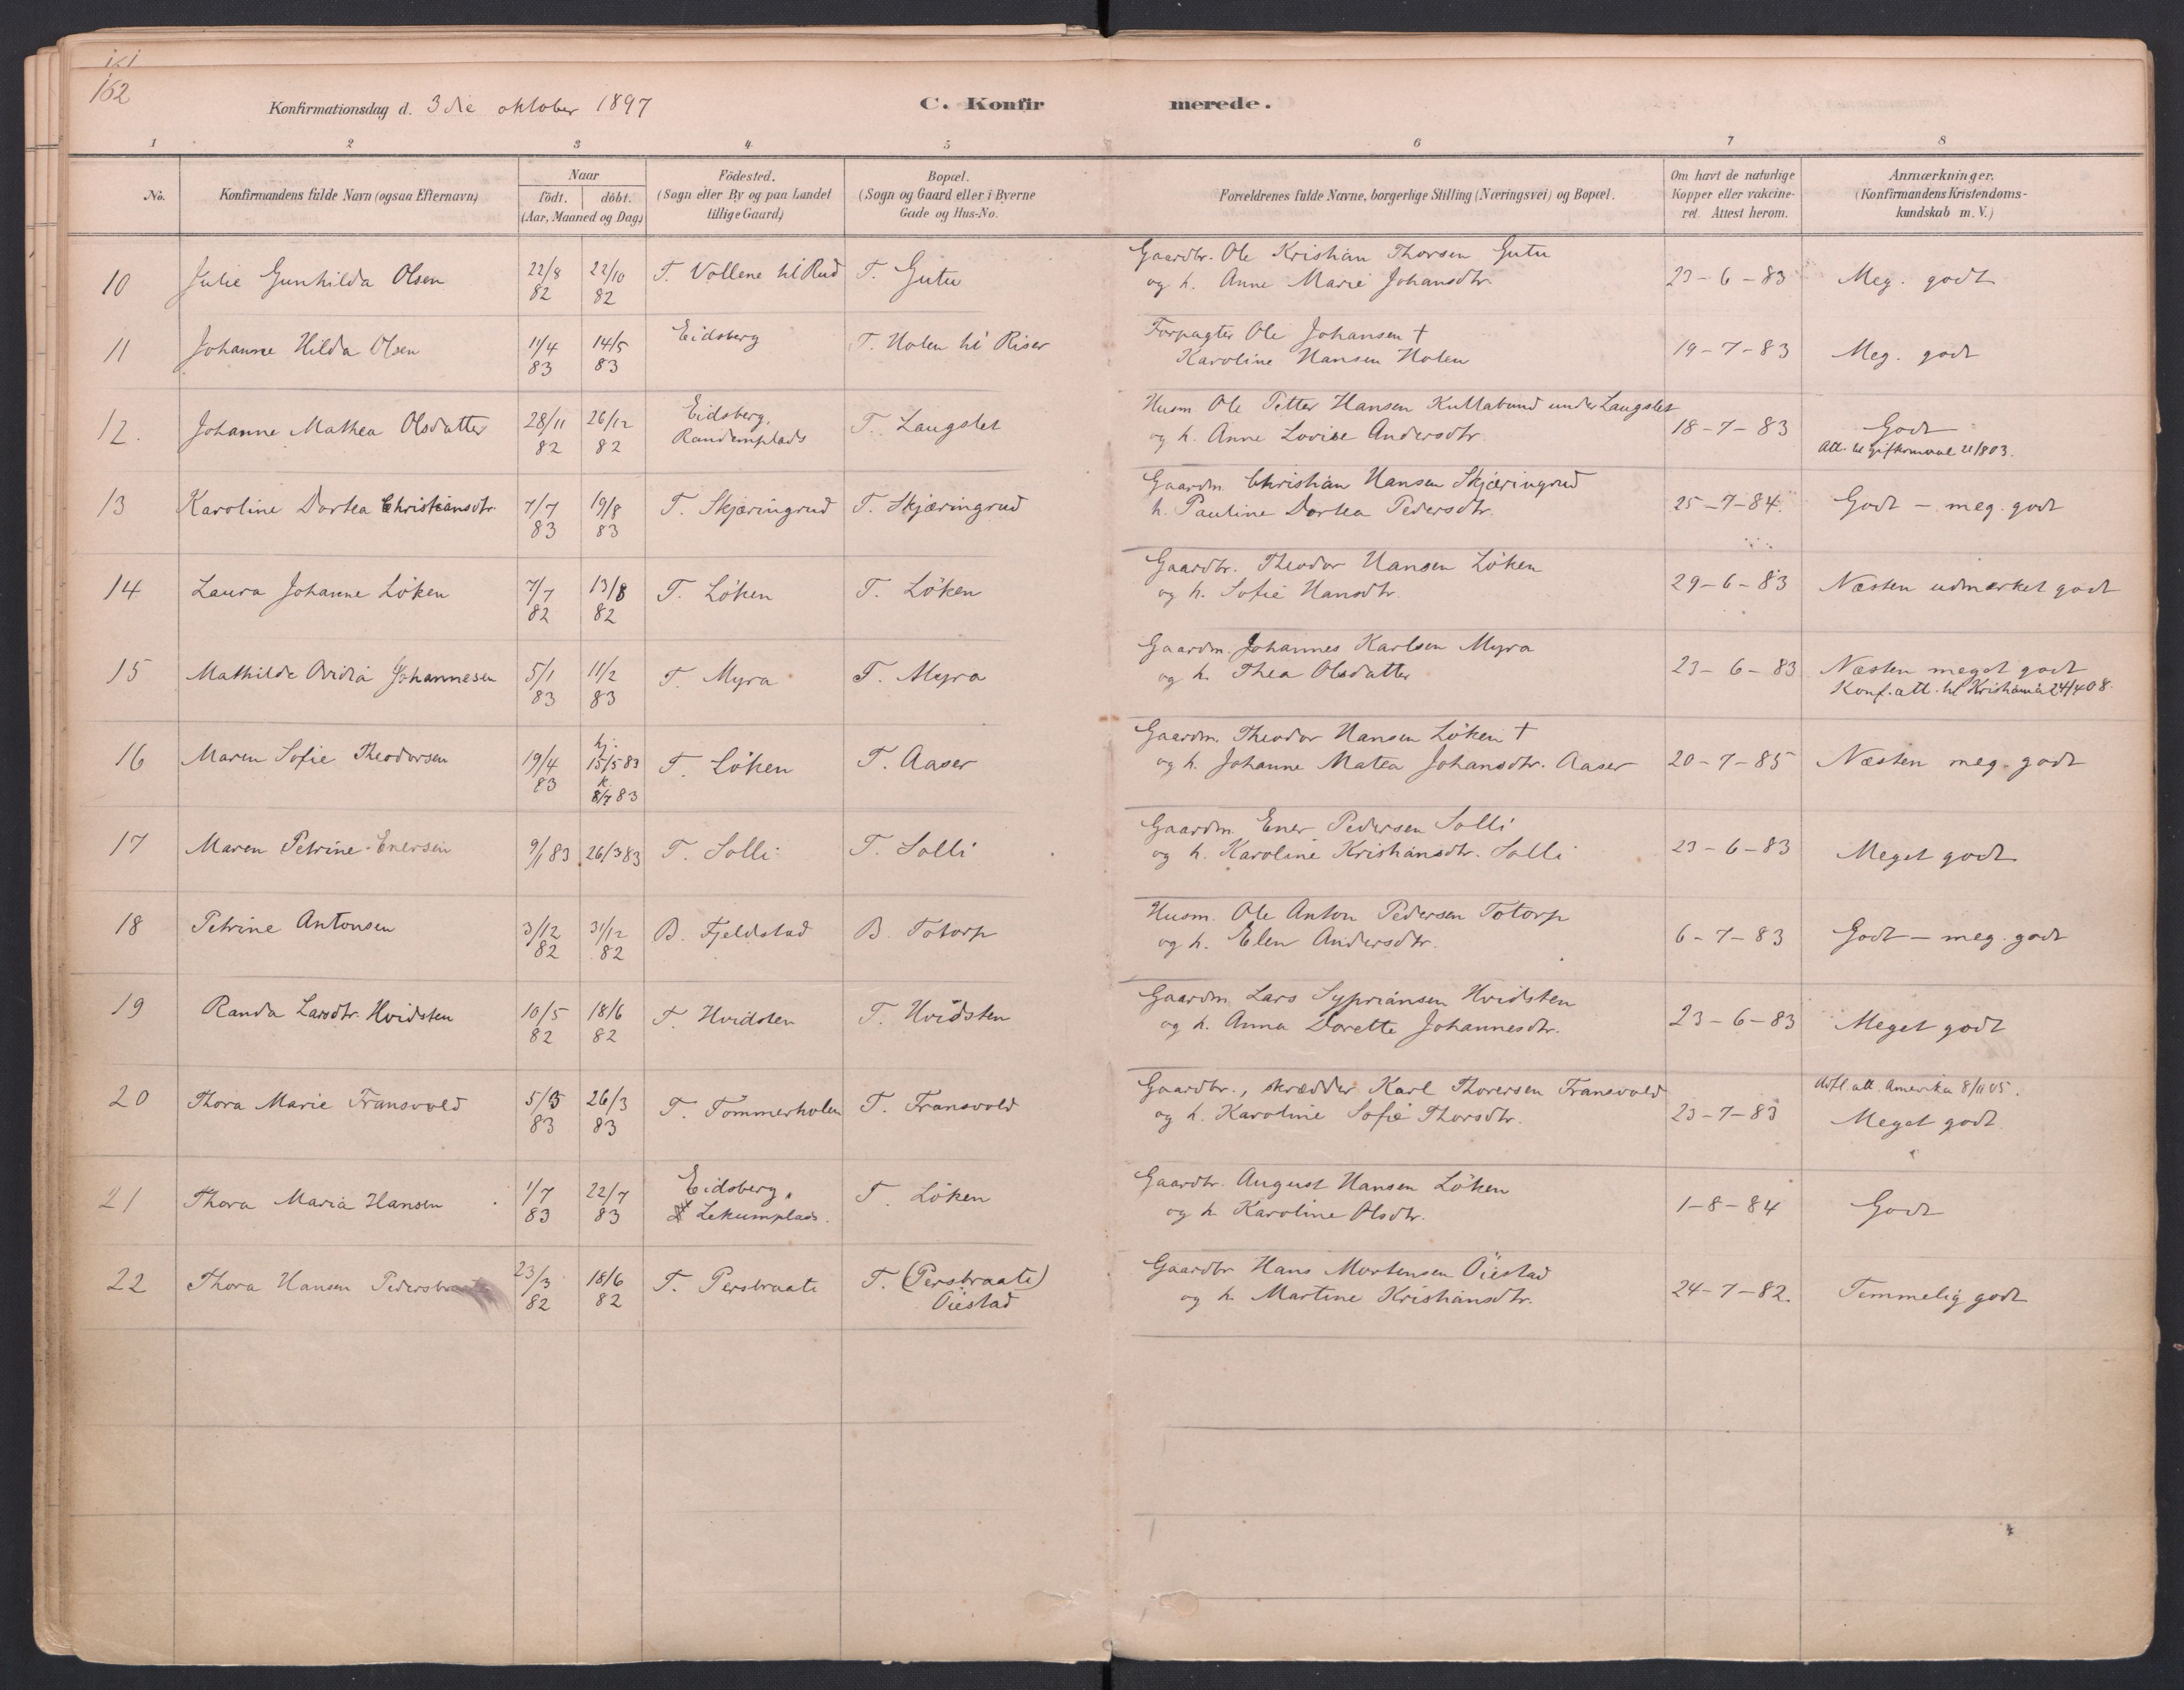 162
Konfirmationsdag d. 3die oktober 1897
C. Konfirmerede.
1 2 3 4 5 6 7 8
No.
Konfirmandens fulde Navn (ogsaa Efternavn)
Naar
født. døbt.
(Aar, Maaned og Dag)
Födested.
(Sogn eller By og paa Landet
tillige Gaard)
Bopæl.
(Sogn og Gaard eller i Byerne
Gade og Hus-No.
Forældrenes fulde Navne, borgerlige Stilling (Næringsvei) og Bopæl.
Om havt de naturlige
Kopper eller vakcine-
ret. Attest herom.
Anmærkninger.
(Konfirmandens Kristendoms-
kundskab m. V.)
10 Julie Gunhilda Olsen 22/8 82 22/10 82 T. Vollene til Rud T. Gutu
Gaardbr. Ole Kristian Thorsen Gutu
og h. Anne Marie Johansdtr. 23-6-83 Meg. godt
11 Johanne Hilda Olsen 11/4 83 14/5 83 Eidsberg T. Holen til Riser
Forpagter Ole Johansen †
Karoline Hansen Holen 19-7-83 Meg. godt
12. Johanne Mathea Olsdatter 28/11 82 26/12 82 Eidsberg, Randemplads T. Laugslet
Husm. Ole Petter Hansen Kullabund under Laugslet
og h. Anne Lovise Andersdtr. 18-7-83 Godt
Att. til Giftermaal 21/8 03.
13 Karoline Dortea Christiansdtr. 7/7 83 19/8 83 T. Skjæringrud T. Skjæringrud
Gaardm. Christian Hansen Skjæringrud
h. Pauline Dortea Pedersdtr. 25-7-84. Godt – meg. godt
14 Laura Johanne Löken 7/7 82 13/8 82 T. Löken T. Löken
Gaardbr. Theodor Hansen Löken
og h. Sofie Hansdtr. 29-6-83 Næsten udmærket godt
15 Mathilde Ovidia Johannesen 5/1 83 11/2 83 T. Myra T. Myra
Gaardm. Johannes Karlsen Myra
og h. Thea Olsdatter 23-6-83 Næsten meget godt
Konf. att. til Kristiania 24/4 08.
16 Maren Sofie Theodorsen 19/4 83 hj. 15/5 83 k. 8/7 83 T. Löken T. Aaser
Gaardm. Theodor Hansen Löken †
og h. Johanne Matea Johansdtr. Aaser 20-7-85 Næsten meg. godt
17 Maren Petrine Enersen 9/1 83 26/3 83 T. Solli T. Solli
Gaardm. Ener Pedersen Solli
og h. Karoline Kristiansdtr. Solli 23-6-83 Meget godt
18 Petrine Antonsen 3/12 82 31/12 82 B. Fjeldstad B. Totorp
Husm. Ole Anton Pedersen Totorp
og h. Elen Andersdtr. 6-7-83 Godt – meg. godt
19 Randa Larsdtr. Hvidsten 10/5 82 18/6 82 T. Hvidsten T. Hvidsten
Gaardm. Lars Syprianson Hvidsten
og h. Anna Dorette Johannesdtr. 23-6-83 Meget godt
20 Thora Marie Fransvold 5/3 83 26/3 83 T. Tommerholen T. Fransvold
Gaardbr., skrædder Karl Thoresen Fransvold
og h. Karoline Sofie Thorsdtr. 23-7-83
Utfl. att. Amerika 8/11 05.
Meget godt
21 Thora Maria Hansen 1/7 83 22/7 83 Eidsberg, Lekumplads. T. Löken
Gaardbr. August Hansen Löken
og h. Karoline Olsdtr. 1-8-84 Godt
22 Thora Hansen Pedersbraate 23/3 82 18/6 82 T. Persbraate T. (Persbraate) Öiestad
Gaardbr Hans Mortensen Öiestad
og h. Martine Kristiansdtr. 24-7-82. Temmelig godt